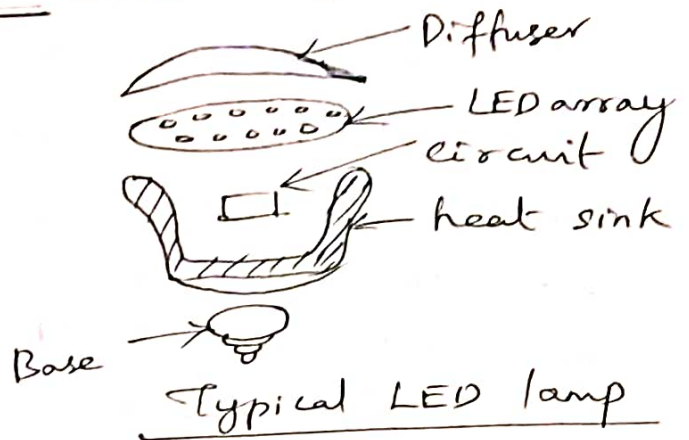 Diffuser
LED array
circuit
heat sink
Base
Typical LED lamp